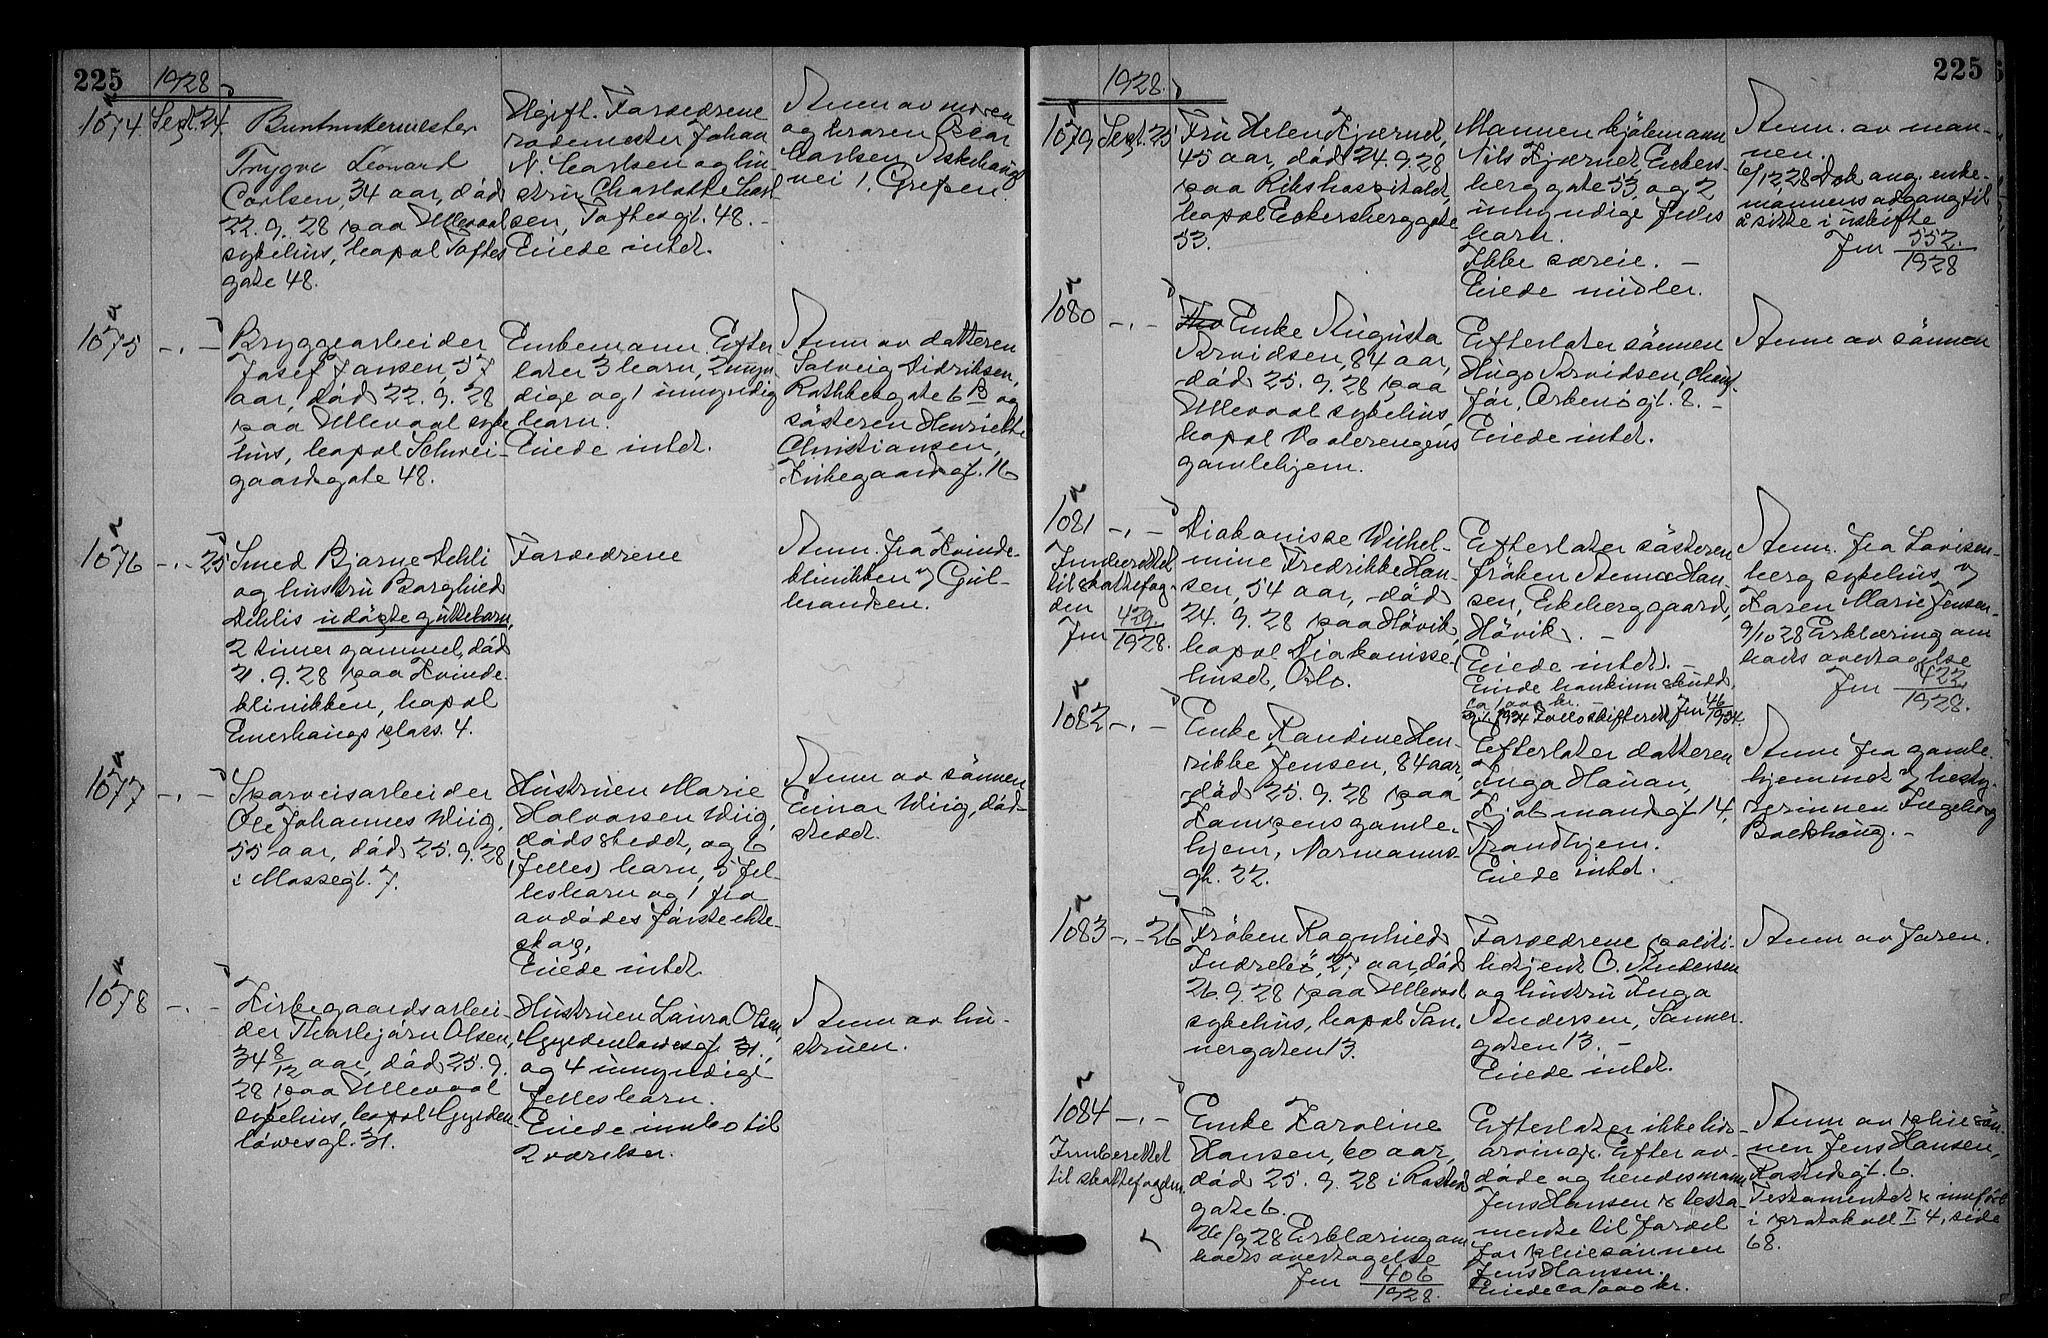 225 1928
1074 Sept. 24
Buntmakermester
Trygve Leonard
Carlsen, 34 aar, död
22. 9. 28 paa Ullevaal
sykehus, bopæl Toftes
gate 48.
Ugift. Forældrene
rodemester Johan
N. Carlsen og hu-
stru Charlotte Carl-
sen, Toftesgt. 48. -
Eiede intet.
Anm. av moren
og broren Oscar
Carlsen
vei 1. Grefsen.
1075 -.-
Bryggearbeider
Josef Jansen, 57
aar, död 22. 9. 28
paa Ullevaal syke
hus, bopæl Schwei-
gaardsgate 48.
Enkemann. Efter
later 3 barn, 2 myn
dige og 1 umyndig
barn.
Eiede intet.
Anm av datteren
Solveig Didriksen,
Rathkesgate 6 B og
sösteren Henriette
Christiansen,
Kirkegaardsgt. 16
1076 -.- 25
Smed Bjarne Dehli
og hustru Borghild
Dehlis udöpte guttebarn,
2 timer gammel, död
21. 9. 28 paa Kvinde
klinikken, bopæl
Enerhaugs plass. 4.
Forældrene
Anm. fra Kvinde-
klinikken v/ Gul-
brandsen.
1077 -.-
Sporveisarbeider
Ole Johannes Wiig,
55 aar, död 25. 9. 28
i Mossegt. 7.
Hustruen Marie
Halvorsen Wiig,
dödsstedet, og 6
(felles) barn, 5 fel-
lesbarn og 1 fra
avdödes förste ekte-
skap.
Eiede intet
Anm av sönnen
Einar Wiig, död-
stedet.
1078 -.-
Kirkegaardsarbei-
der Thorbjörn Olsen,
34 8/12 aar, död 25. 9.
28 paa Ullevaal
sykehus, bopæl Gylden-
lövesgt. 31.
Hustruen Laura Olsen,
Gyldenlövesgt. 31.,
og 4 umyndige
fellesbarn.
Eiede innbo til
2 værelser.
Anm av hu-
struen.
1928. 225
1079 Sept. 25
Fru Helen Kjærnet,
45 aar, död 24. 9. 28
paa Rikshospitalet,
bopæl Eckersberggate
53.
Mannen kjöbmann
Nils Kjærnet, Eckers-
berg gate 53, og 2
umyndige felles
barn.
Ikke særeie. -
Eiede midler.
Anm. av man-
nen.
6/12 28 Dok ang. enke-
mannens adgang til
å sitte i uskifte
Jnr 552./1928
1080 -.-
Enke Augusta
Arvidsen, 84 aar,
död 25. 9. 28 paa
Ullevaal sykehus,
bopæl Vaalerengens
gamlehjem.
Efterlater sönnen
Hugo Arvidsen, chauf-
för, Orknögt. 8. -
Eiede intet.
Anm av sönnen
1081 -.-
Innberettet
til skattefog-
den
Jnr 429/1928.
Diakonisse Wilhel-
mine Fredrikke Han-
sen, 54 aar, död
24. 9. 28 paa Hövik,
bopæl Diakonisse-
huset, Oslo.
Efterlater sösteren
fröken Anna Han-
sen, Ekeberggaard,
Hövik. -
Eiede intet. -
Eiede bankinnskudd
ca 1000 kr. -
1934 Follo skifterett Jnr 46/1934
Anm. fra Lovisen-
berg sykehus v/
Karen Marie Jensen-
9/10 28 Erklæring om
boets overtagelse
Jnr 422/1928.
1082 -.-
Enke Randine Hen-
rikke Jensen, 84 aar,
död 25. 9. 28 paa
Kampens gamle-
hjem, Normanns-
gt. 22.
Efterlater datteren
Inga Hauan,
Kjöbmandsgt 14,
Trondhjem.
Eiede intet.
Anm fra gamle-
hjemmet v/ besty-
rerinnen Ingeborg
Bakhaug. -
1083 -.- 26
Fröken Ragnhild
Indrelid, 27 aar, död
26. 9. 28 paa Ullevaal
sykehus, bopæl San-
nergaten 13.
Forældrene politi-
betjent O. Andersen
og hustru Inga
Andersen, Sanner-
gaten 13. -
Eiede intet.
Anm av faren.
1084 -.-
Innberettet
til skattefogden.
Enke Karoline
Hansen, 60 aar,
död 25. 9. 28 i Rosteds
gate 6.
26/9 28 Erklæring om
boets overtagelse
Jnr 406/1928.
Efterlater ikke livs-
arvinger. Efter av-
döde og hendes mann
Jens Hansens testa-
mente til fordel
for pleiesönnen
Jens Hansen.
Eiede ca 1000 kr.
Anm av pleiesön-
nen Jens Hansen,
Rostedsgt. 6.
Testamentet er innfört
i protokoll I 4, side
68.